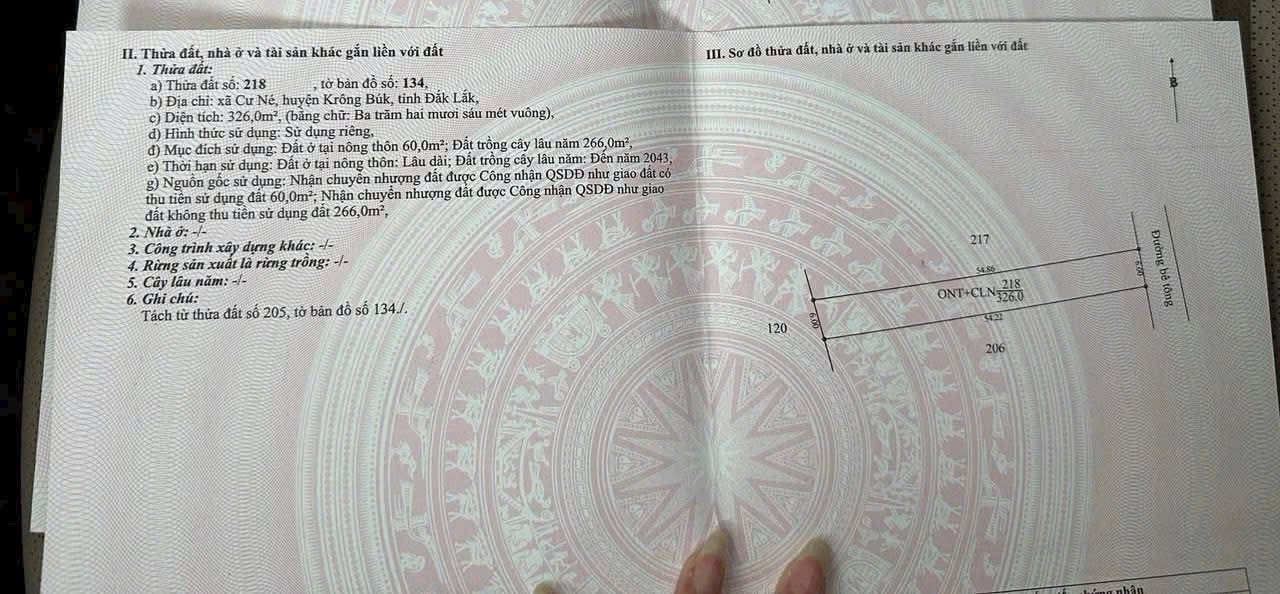 II. Thửa đất, nhà ở và tài sản khác gắn liền với đất
1. Thửa đất:
a) Thửa đất số: 218 , tờ bản đồ số: 134,
b) Địa chỉ: xã Cư Né, huyện Krông Búk, tỉnh Đắk Lắk,
c) Diện tích: 326,0m², (bằng chữ: Ba trăm hai mươi sáu mét vuông),
d) Hình thức sử dụng: Sử dụng riêng,
đ) Mục đích sử dụng: Đất ở tại nông thôn 60,0m²; Đất trồng cây lâu năm 266,0m²,
e) Thời hạn sử dụng: Đất ở tại nông thôn: Lâu dài; Đất trồng cây lâu năm: Đến năm 2043,
g) Nguồn gốc sử dụng: Nhận chuyển nhượng đất được Công nhận QSDĐ như giao đất có
thu tiền sử dụng đất 60,0m²; Nhận chuyển nhượng đất được Công nhận QSDĐ như giao
đất không thu tiền sử dụng đất 266,0m²,
2. Nhà ở: -/-
3. Công trình xây dựng khác: -/-
4. Rừng sản xuất là rừng trồng: -/-
5. Cây lâu năm: -/-
6. Ghi chú:
Tách từ thửa đất số 205, tờ bản đồ số 134./.
III. Sơ đồ thửa đất, nhà ở và tài sản khác gắn liền với đất
B
217
54.86
6.00
Đường bê tông
ONT+CLN 218
326.0
6.00
120
54.22
206
chứng nhận